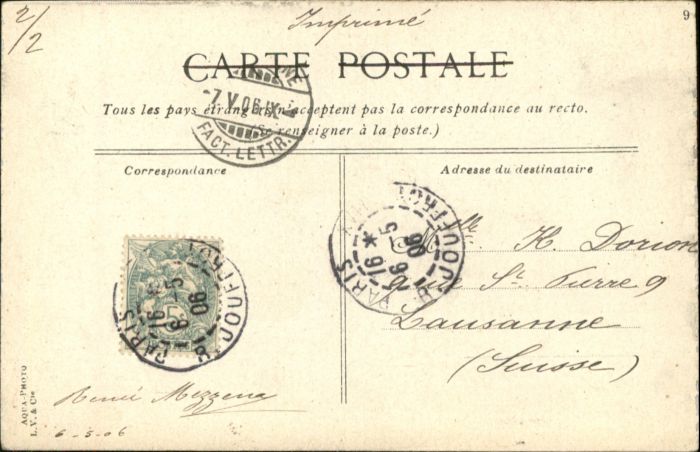 2/2
Imprimé
9
CARTE POSTALE
Tous les pays étrangers n'acceptent pas la correspondance au recto.
(Se renseigner à la poste.)
NE
-7.V.06.IX-
FACT. LETTR.
Correspondance
Adresse du destinataire
PARIS
16
6 -5
06
R. JOUFFROY
PARIS *
16
6 -5
06
R. JOUFFROY
Mlle H. Dorion
9 rue St Pierre 9
Lausanne
(Suisse)
René Mezzena
6-5-06
AQUA-PHOTO
L.V. & Cie